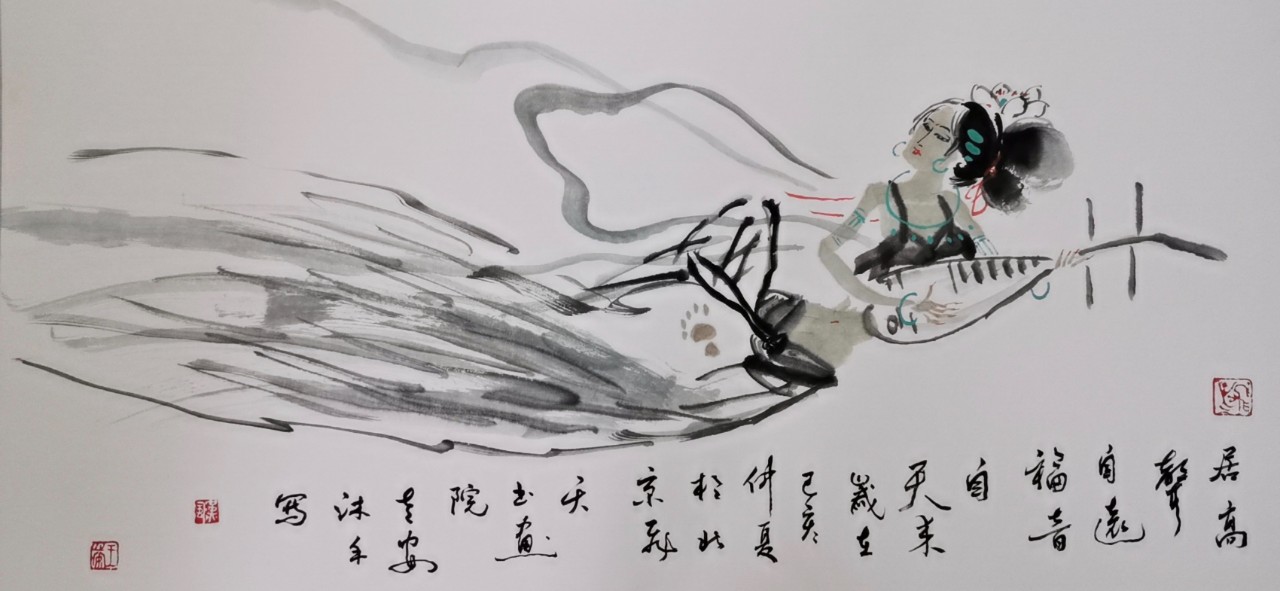 居高
聲
自遠
福音
自
天来
歲在
己亥
仲夏
於北
京飛
天
书画
院
安
沐手
寫